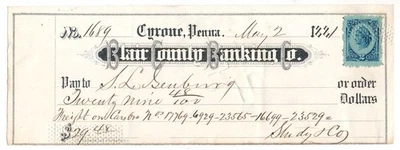 No. 1689 Tyrone, Penna. May 2 1881
Blair County Banking Co.
Pay to S. L. Isenburg or order
Twenty Nine 48/100 Dollars
Freight on Cars No 17769-6929-23565-16699-23529
$29.48 Study & Co